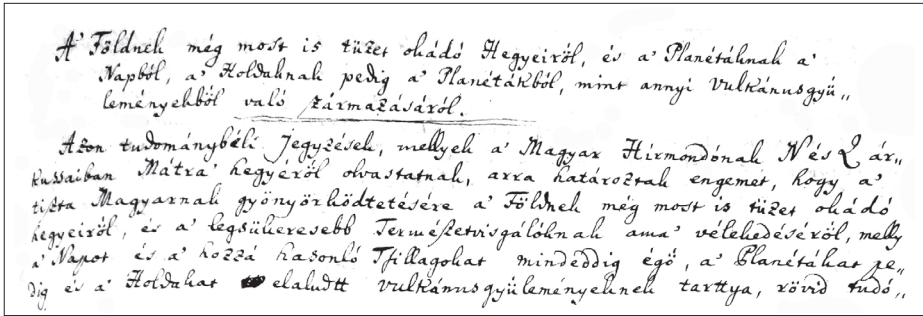 A' Földnek még most is tüzet okádó Hegyeiről, és a' Planétáknak a'
Napból, a' Holdaknak pedig a' Planétákból, mint annyi Vulkánusgyü„
leményekből való származásáról.
Azon tudománybéli Jegyzések, mellyek a' Magyar Hírmondónak N és Q ár„
kussaiban Mátra' hegyéről olvastatnak, arra határoztak engemet, hogy a'
tiszta Magyarnak gyönyörködtetésére a' Földnek még most is tüzet okádó
hegyeiről, és a' legsükeresebb Természetvisgálóknak ama' vélekedéséről, melly
a' Napot és a' hozzá hasonló Tsillagokat mindeddig égő, a' Planétákat pe„
dig és a' Holdakat elaludtt vulkánusgyüleményeknek tarttya, rövid tudó„